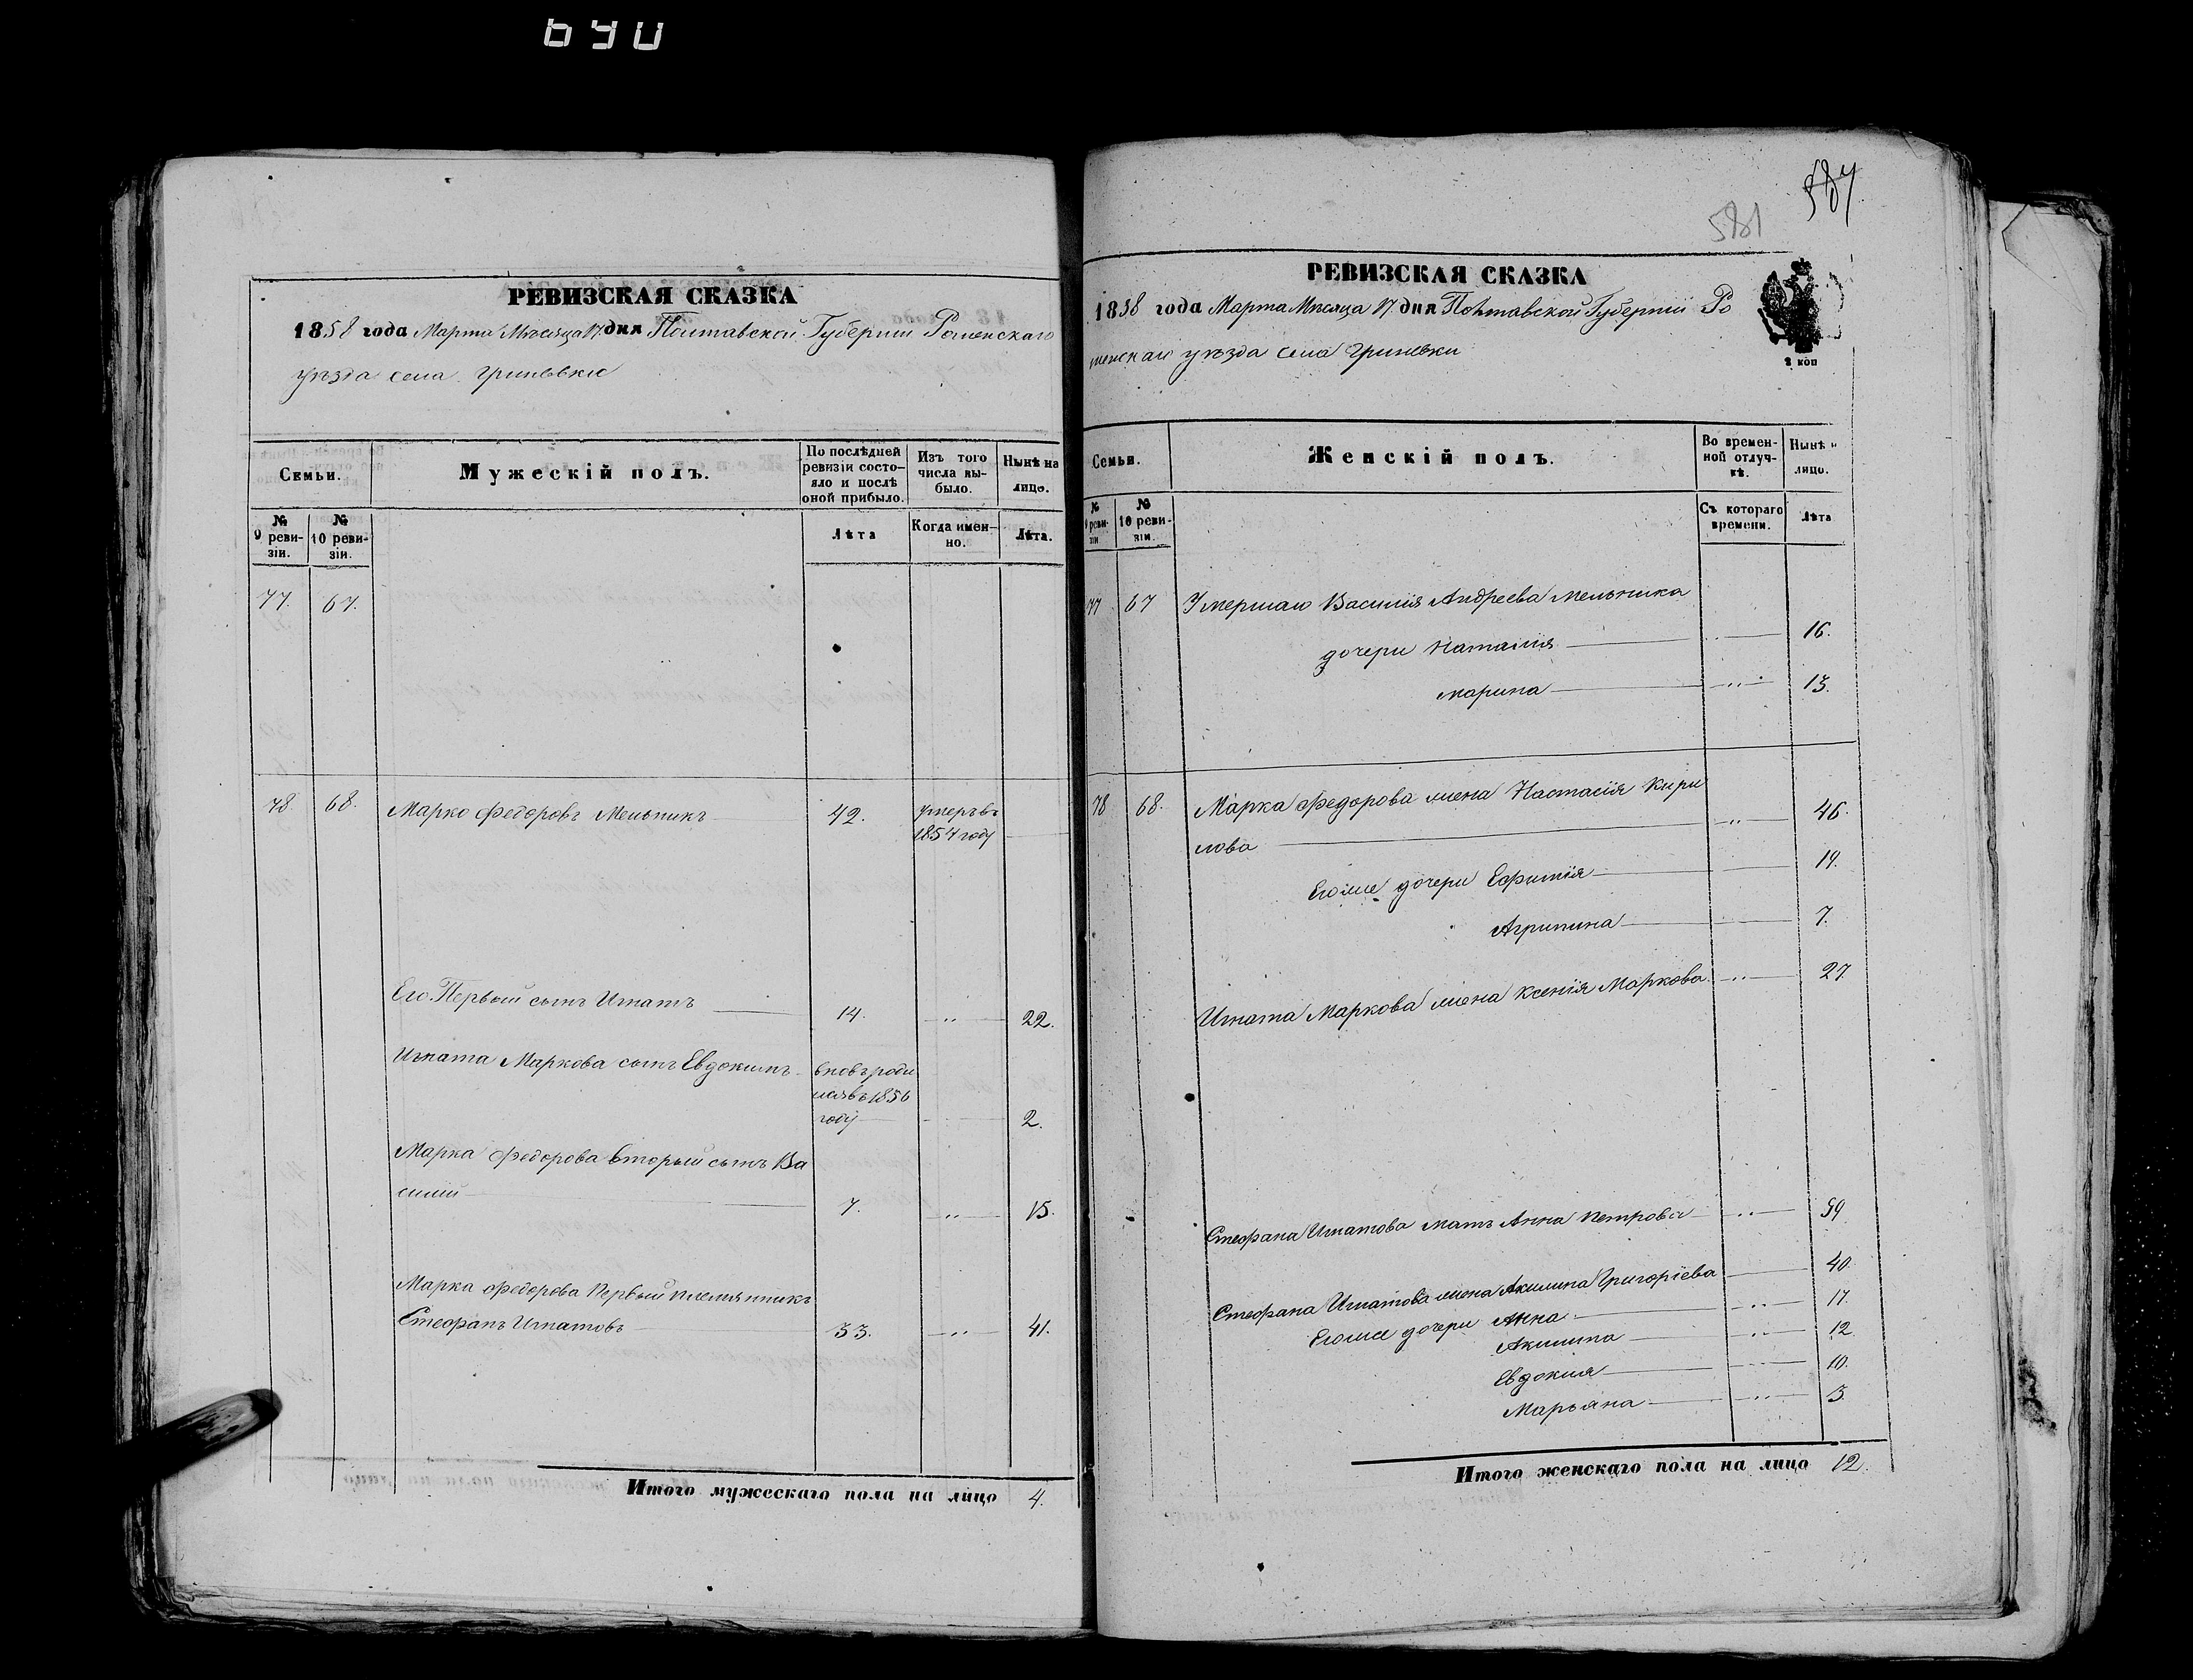 690
587
581
РЕВИЗСКАЯ СКАЗКА
1858 года Марта Мѣсяца 17 дня Полтавской Губернии Роменскаго
уѣзда села Гриневки
Семьи.
Мужескій полъ.
По послѣдней ревизіи состояло и послѣ оной прибыло.
Изъ того числа выбыло.
Нынѣ на лицо.
№ 9 ревизіи.
№ 10 ревизіи.
Лѣта
Когда именно.
Лѣта.
77. 67.
78. 68. Марко Федоровъ Мельникъ 42. умеръ въ
1857 году
Его Первый сынъ Игнатъ 14. " 22.
Игната Маркова сынъ Евдокимъ вновь роди
лся въ 1856
году 2.
Марка Федорова вторый сынъ Ва
силий 7. " 15.
Марка Федорова Первый племянникъ
Стефанъ Игнатовъ 33. " 41.
Итого мужескаго пола на лицо 4.
РЕВИЗСКАЯ СКАЗКА
1858 года Марта Мѣсяца 17 дня Полтавской Губернии Ро
менскаго уѣзда села Гриневки
2 коп
Семьи.
Женскій полъ.
Во временной отлучкѣ.
Нынѣ н лицо.
№ 9 ревизіи
№ 10 ревизіи.
Съ котораго времени.
Лѣта
77 67 Умершаго Василия Андреева Мельника
дочери Наталия " 16.
Марина " 13.
78 68. Марка Федорова жена Настасія Кири
лова " 46.
Его же дочери Ефимія 19.
Агрипина 7.
Игната Маркова жена Ксенія Маркова " 27.
Стефана Игнатова мать Анна Петрова " 59.
Стефана Игнатова жена Акилина Григоріева 40.
Его же дочери Анна " 17.
Акилина " 12.
Евдокия 10.
Марьяна " 3.
Итого женскаго пола на лицо 12.